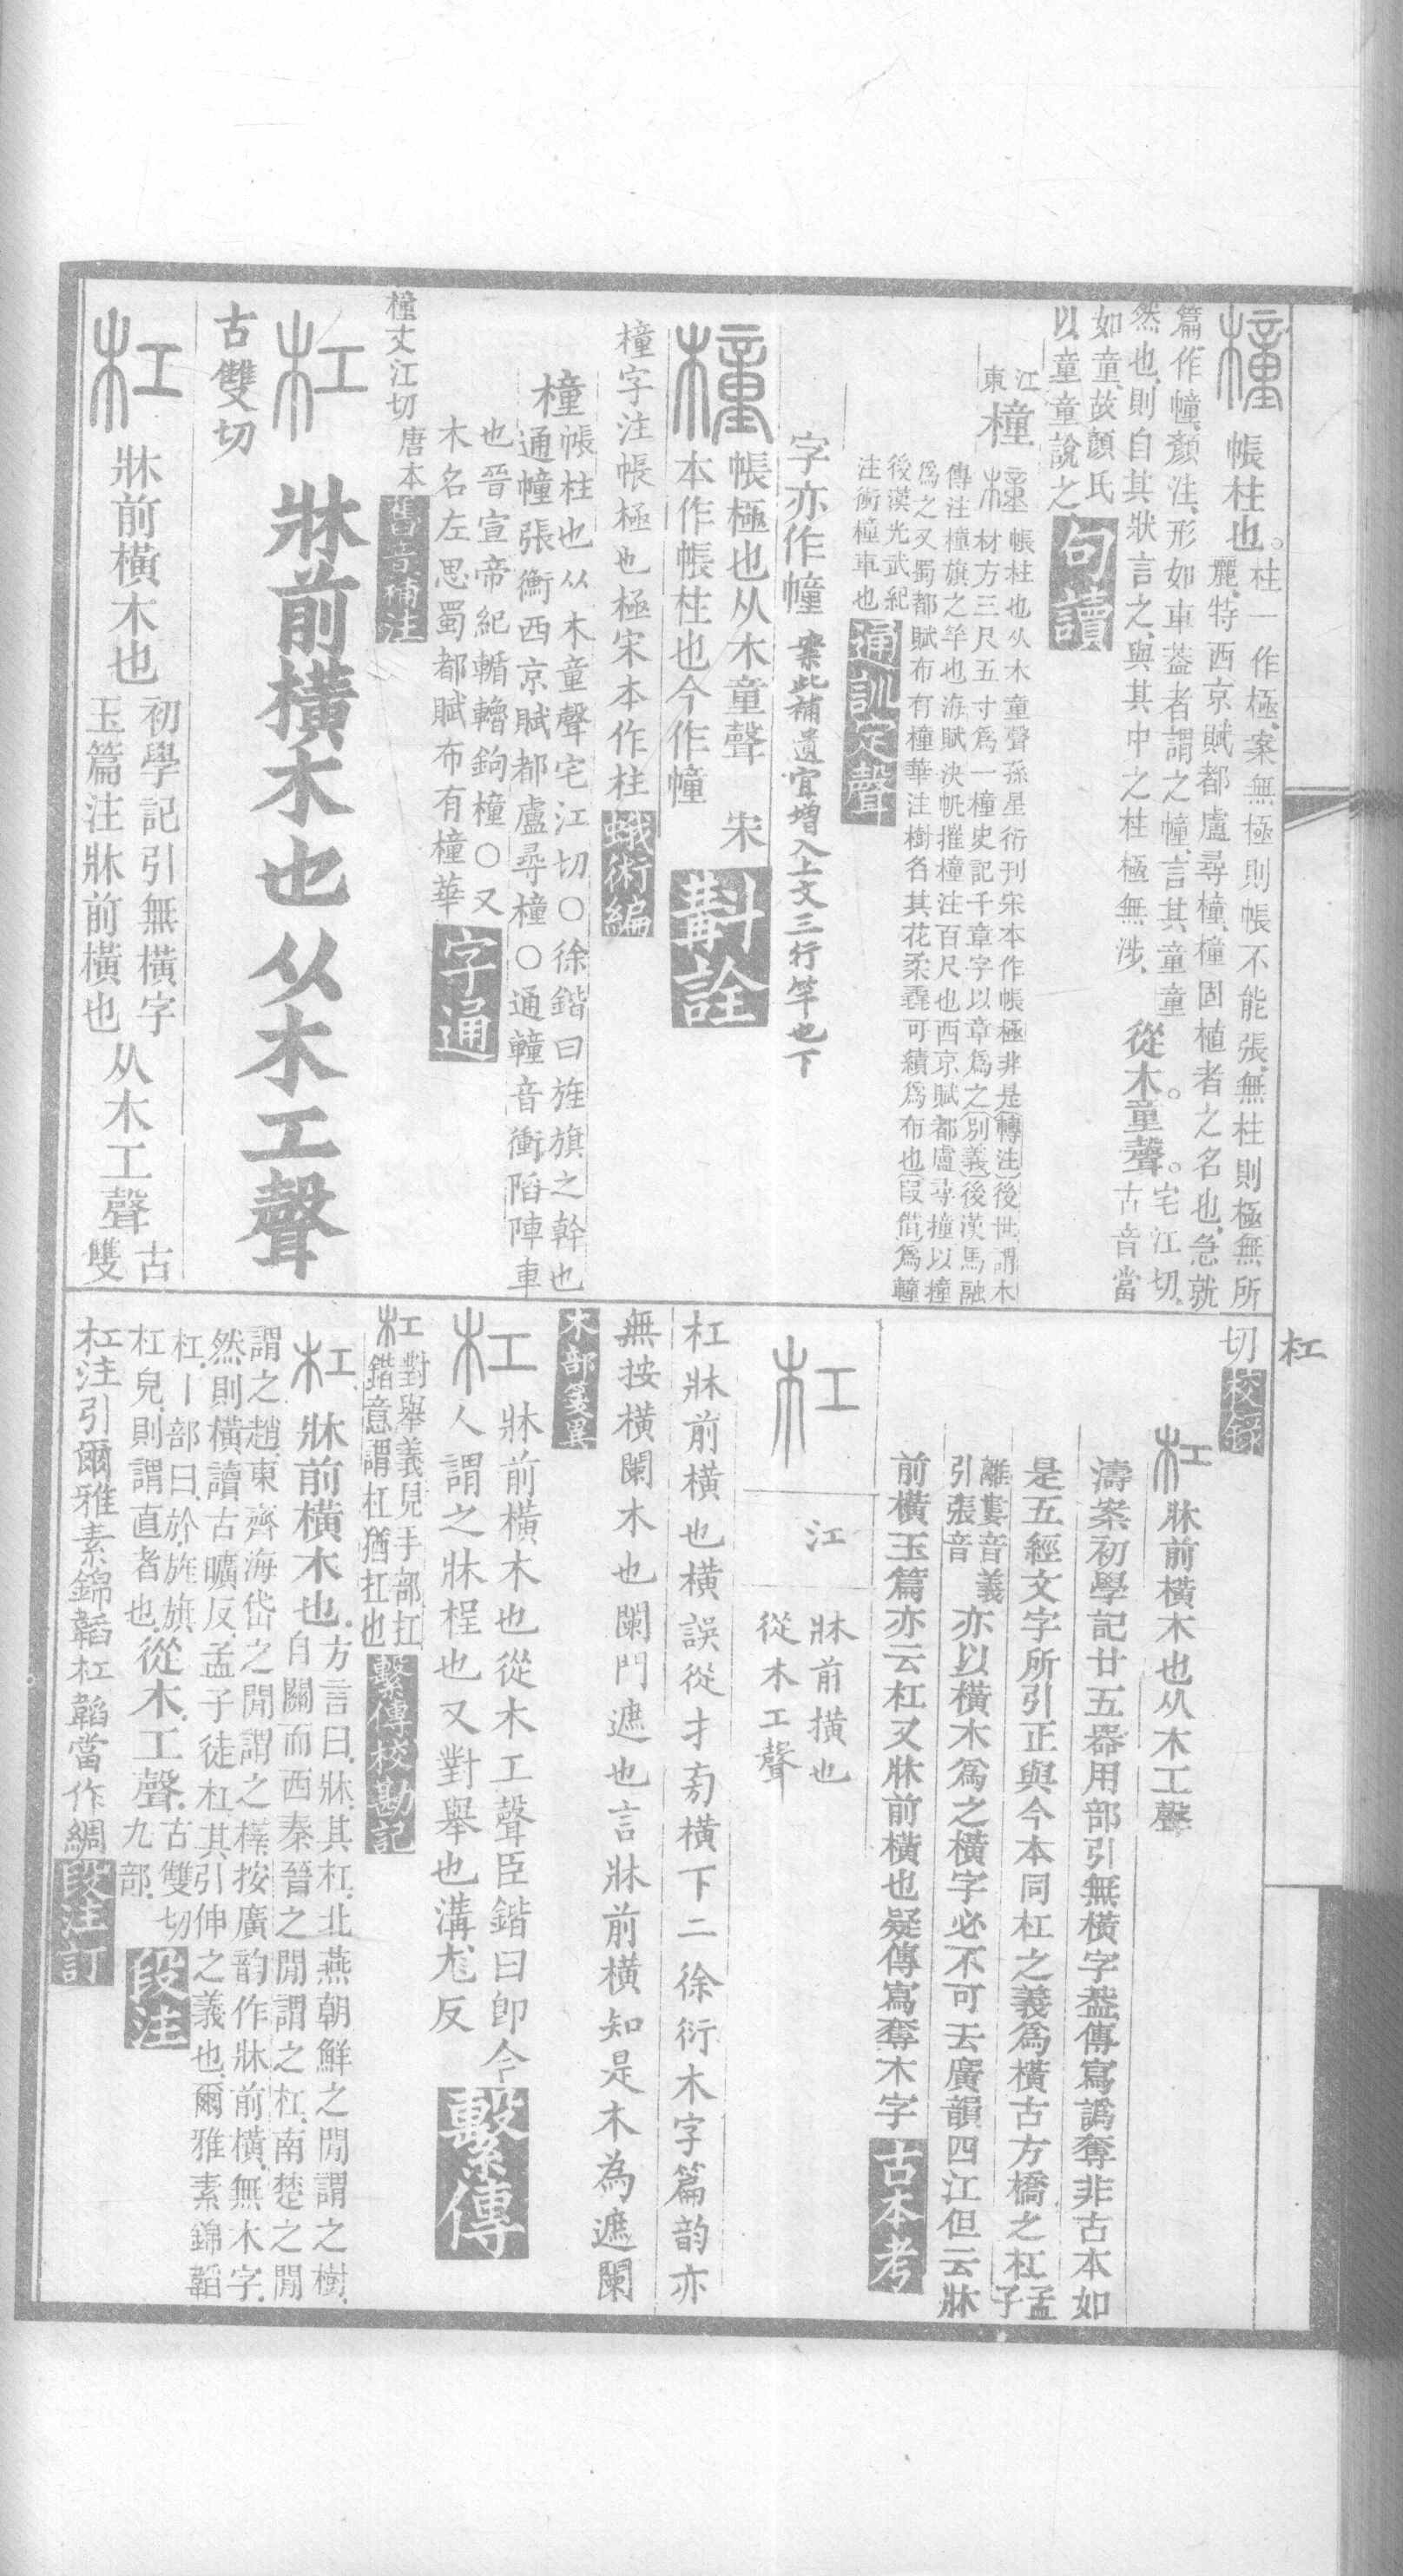 橦
帳柱也。柱一作極、案無極則帳不能張、無柱則極無所
麗、特西京賦都盧尋橦、橦固植者之名也、急就
篇作幢、顏注、形如車葢者謂之幢、言其童童
然也、則自其狀言之、與其中之柱極無涉、從木。童聲。宅江切、
如童、故顏氏
古音當
以童童說之
句讀
江
東
橦
橦帳柱也从木童聲孫星衍刊宋本作帳極非是(轉注)後世謂木
材方三尺五寸爲一橦史記千章字以章爲之(別義)後漢馬融
傳注橦旗之竿也海賦決帆摧橦注百尺也西京賦都盧尋橦以橦
爲之又蜀都賦布有橦華注樹名其花柔毳可績爲布也(叚借)爲䡴
後漢光武紀
注衝橦車也
通訓定聲
字亦作幢 案此補遺宜增入上文三行竿也下
橦
帳極也从木童聲 宋
本作帳柱也今作幢
斠詮
橦字注帳極也極宋本作柱
蛾術編
橦
帳柱也从木童聲宅江切〇徐鍇曰旌旗之幹也
通幢張衡西京賦都盧尋橦〇通䡴音衝陷陣車
也晉宣帝紀輴䡴鉤橦〇又
木名左思蜀都賦布有橦華
字通
橦丈江切唐本
舊音補注
杠
牀前橫木也从木工聲
古雙切
杠
牀前橫木也
初學記引無橫字
玉篇注牀前橫也
从木工聲
古
雙
杠
切
校錄
杠
牀前橫木也从木工聲
濤案初學記廿五器用部引無橫字葢傳寫譌奪非古本如
是五經文字所引正與今本同杠之義爲橫古方橋之杠孟子
離婁音義
引張音
亦以橫木爲之橫字必不可去廣韻四江但云牀
前橫玉篇亦云杠又牀前橫也疑傳寫奪木字
古本考
杠
江
牀前橫也
從木工聲
杠牀前橫也橫誤從才㫄橫下二徐衍木字篇韵亦
無按橫闌木也闌門遮也言牀前橫知是木為遮闌
木部箋異
杠
牀前橫木也從木工聲臣鍇曰卽今
人謂之牀桯也又對舉也溝尨反
繫傳
杠
對舉義見手部扛
鍇意謂杠猶扛也
繫傳校勘記
杠
牀前橫木也。方言曰、牀、其杠、北燕朝鮮之閒謂之樹、
自關而西秦晉之閒謂之杠、南楚之閒
謂之趙、東齊海岱之閒謂之樺、按廣韵作牀前橫、無木字、
然則橫讀古曠反、孟子徒杠、其引伸之義也、爾雅素錦韜
杠、丨部曰、㫃、旌旗
杠皃、則謂直者也、從木。工聲。古雙切
九部、
段注
杠注引爾雅素錦韜杠韜當作綢
段注訂